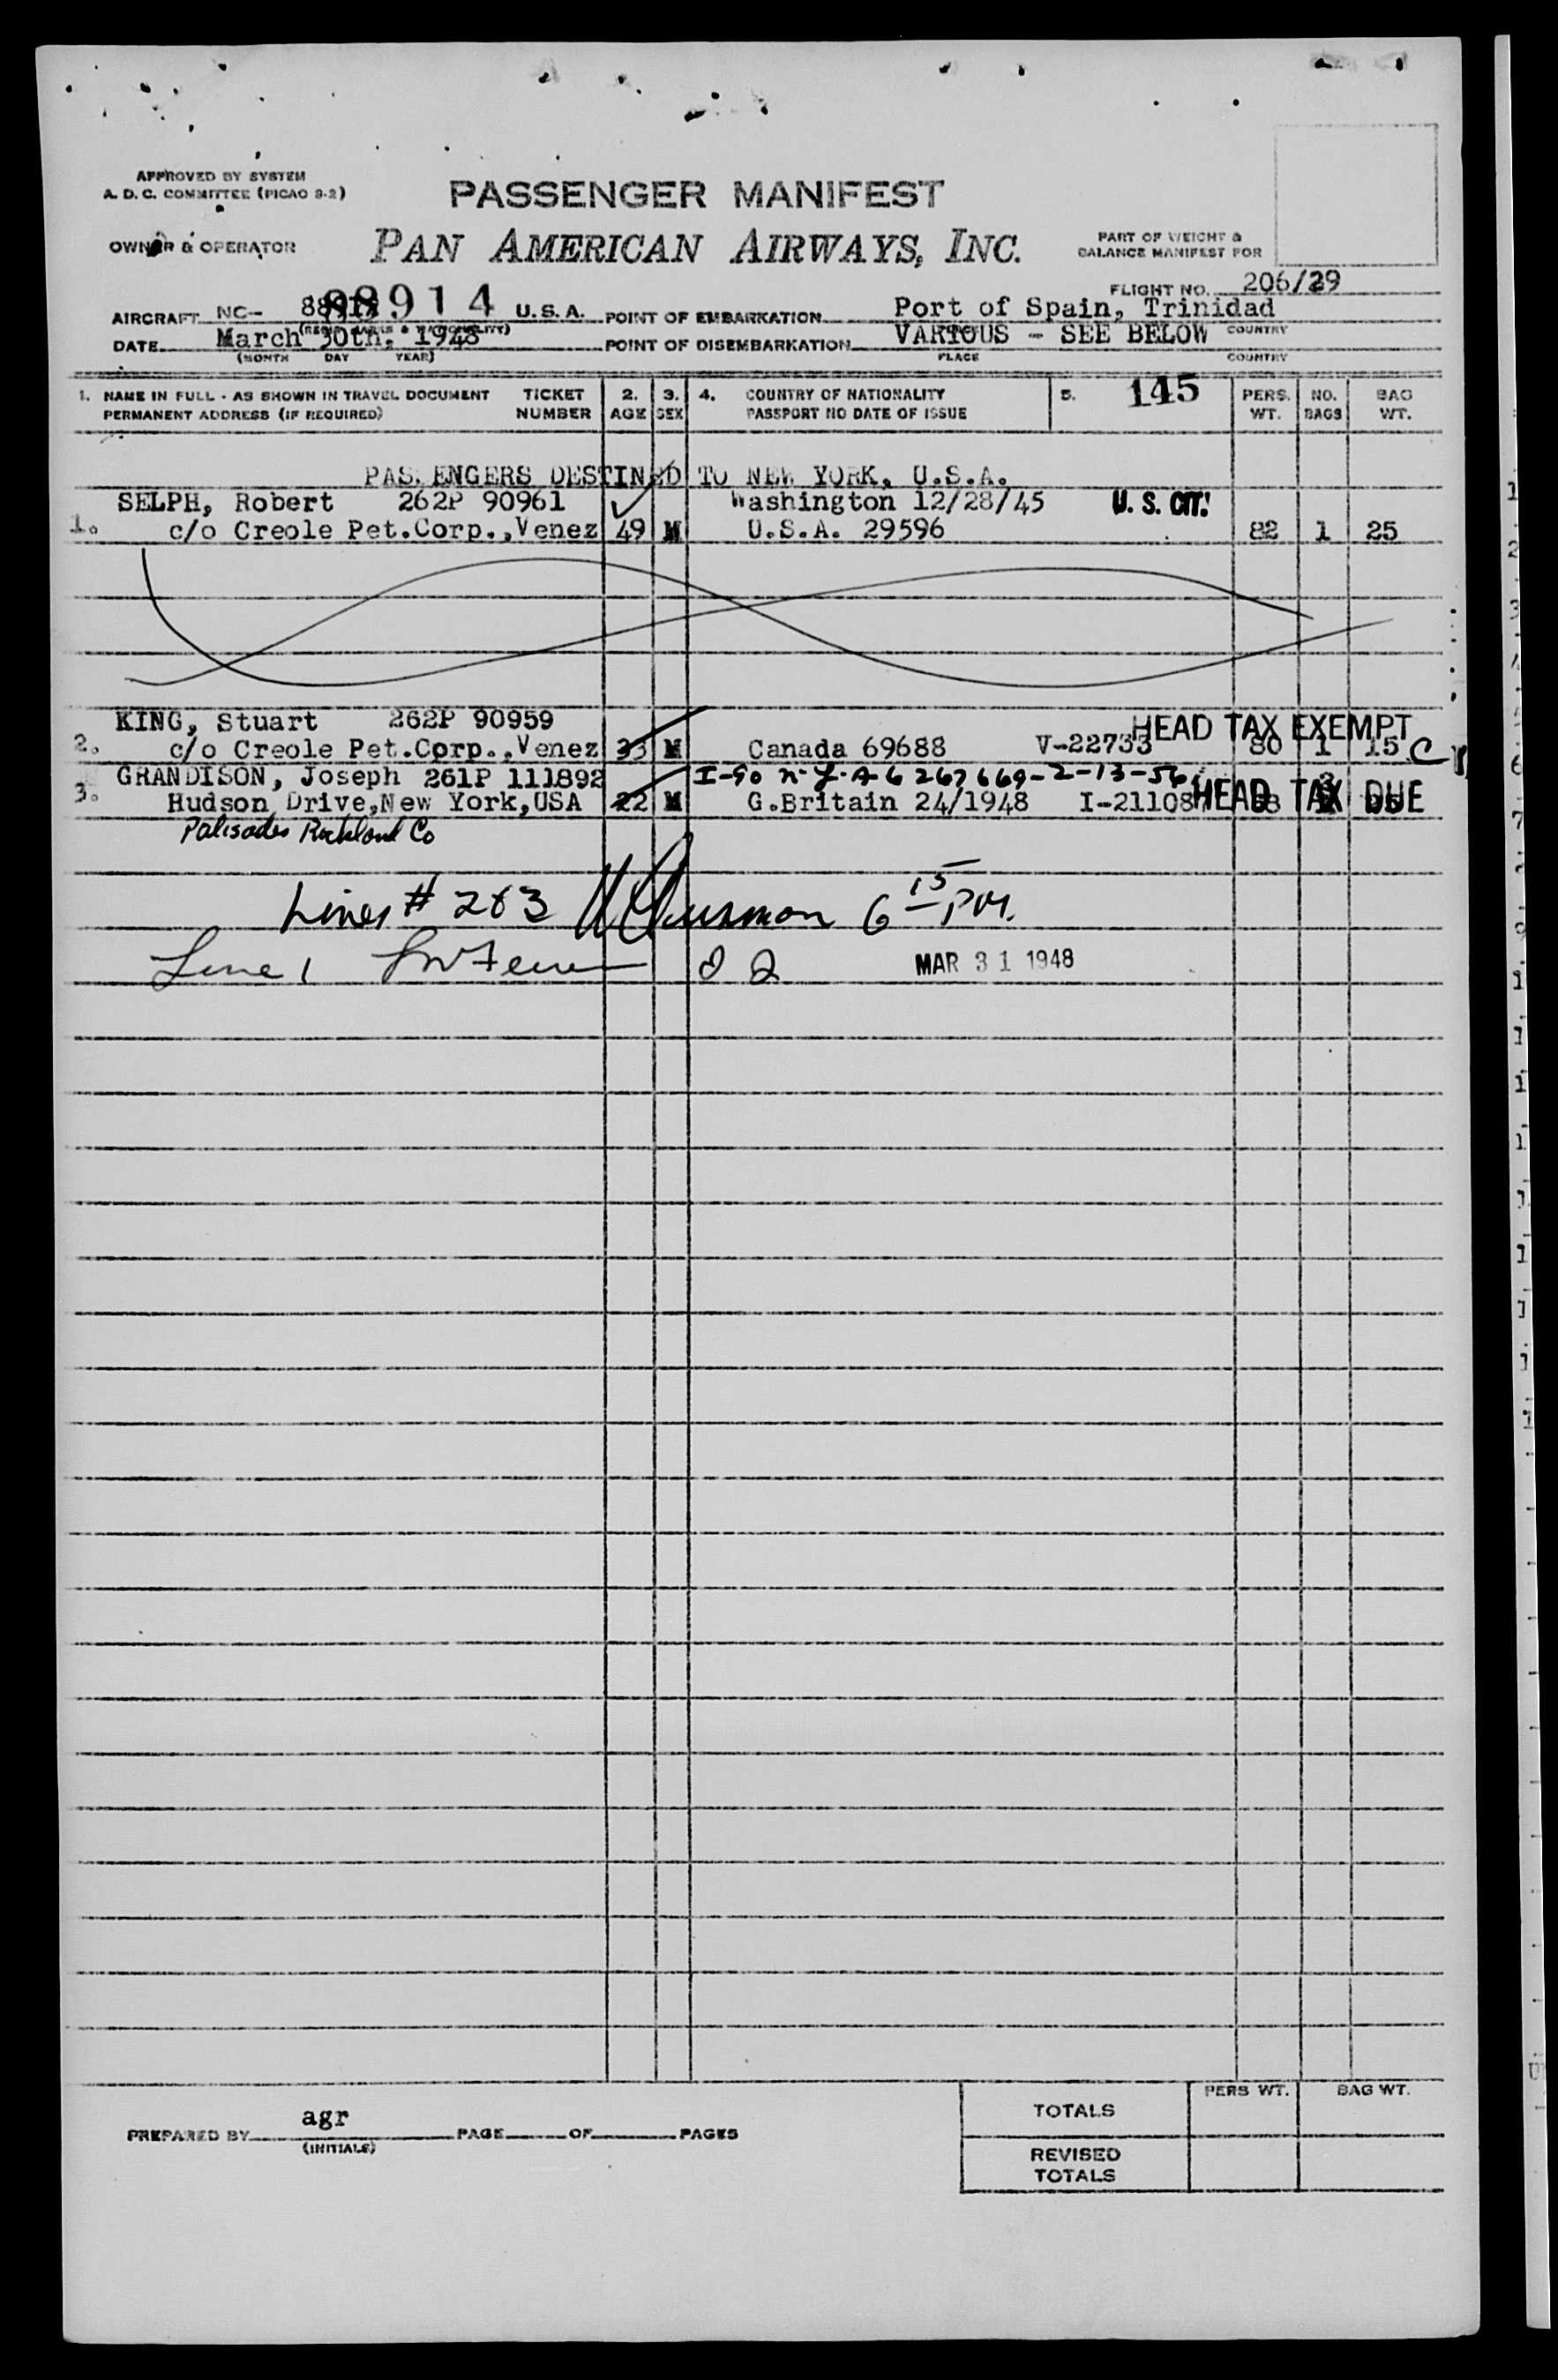 APPROVED BY SYSTEM
A. D. C. COMMITTEE (PICAO 9-2)
PASSENGER MANIFEST
OWNER & OPERATOR
PAN AMERICAN AIRWAYS, INC.
PART OF WEIGHT &
BALANCE MANIFEST FOR
FLIGHT NO. 206/29
AIRCRAFT NC- 88914 U.S.A. POINT OF EMBARKATION Port of Spain, Trinidad
(REGIS. MARKS & NATIONALITY) PLACE COUNTRY
DATE March 30th, 1948 POINT OF DISEMBARKATION VARIOUS - SEE BELOW
(MONTH DAY YEAR) PLACE COUNTRY
1. NAME IN FULL - AS SHOWN IN TRAVEL DOCUMENT TICKET 2. 3. 4. COUNTRY OF NATIONALITY 5. 145 PERS. NO. BAG
PERMANENT ADDRESS (IF REQUIRED) NUMBER AGE SEX PASSPORT NO DATE OF ISSUE WT. BAGS WT.
PAS ENGERS DESTINED TO NEW YORK, U.S.A.
SELPH, Robert 262P 90961 Washington 12/28/45 U.S. CIT.
1. c/o Creole Pet.Corp.,Venez 49 M U.S.A. 29596 82 1 25
KING, Stuart 262P 90959 HEAD TAX EXEMPT
2. c/o Creole Pet.Corp.,Venez 33 M Canada 69688 V-22733 80 1 15 C
GRANDISON, Joseph 261P 111892 I-90 N.Y. A-6 267669-2-13-56
3. Hudson Drive,New York,USA 22 M G.Britain 24/1948 I-21108 HEAD TAX DUE
Palisades Rockland Co
Lines # 2&3 6 15 P.M.
Line 1 MAR 31 1948
PREPARED BY agr PAGE OF PAGES
(INITIALS)
PERS WT. BAG WT.
TOTALS
REVISED
TOTALS